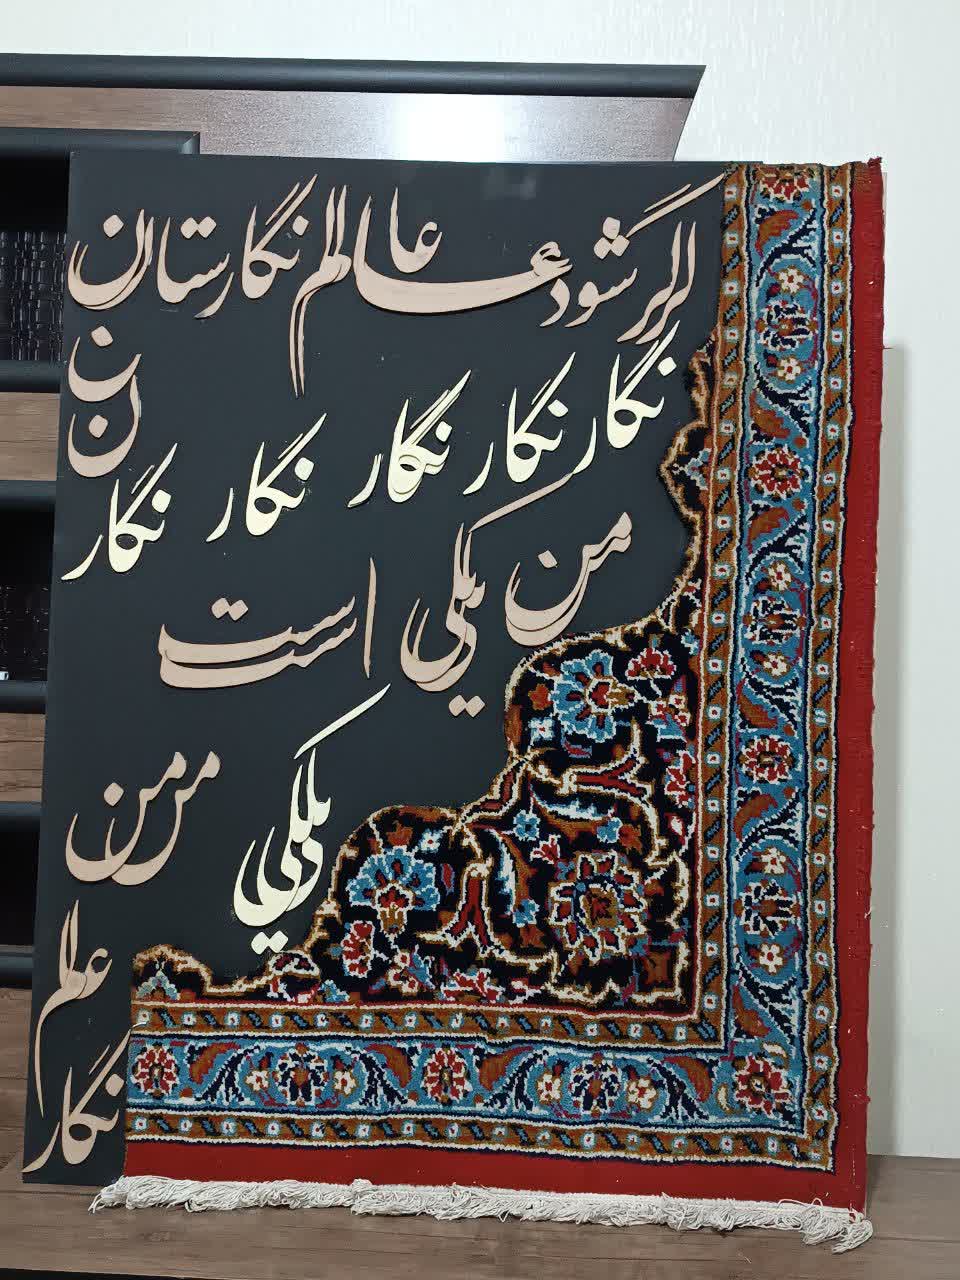 گر شود عالم نگارستان
ن
ن
نگار نگار نگار نگار نگار
من یکی است
یکی
من من
عالم
نگار